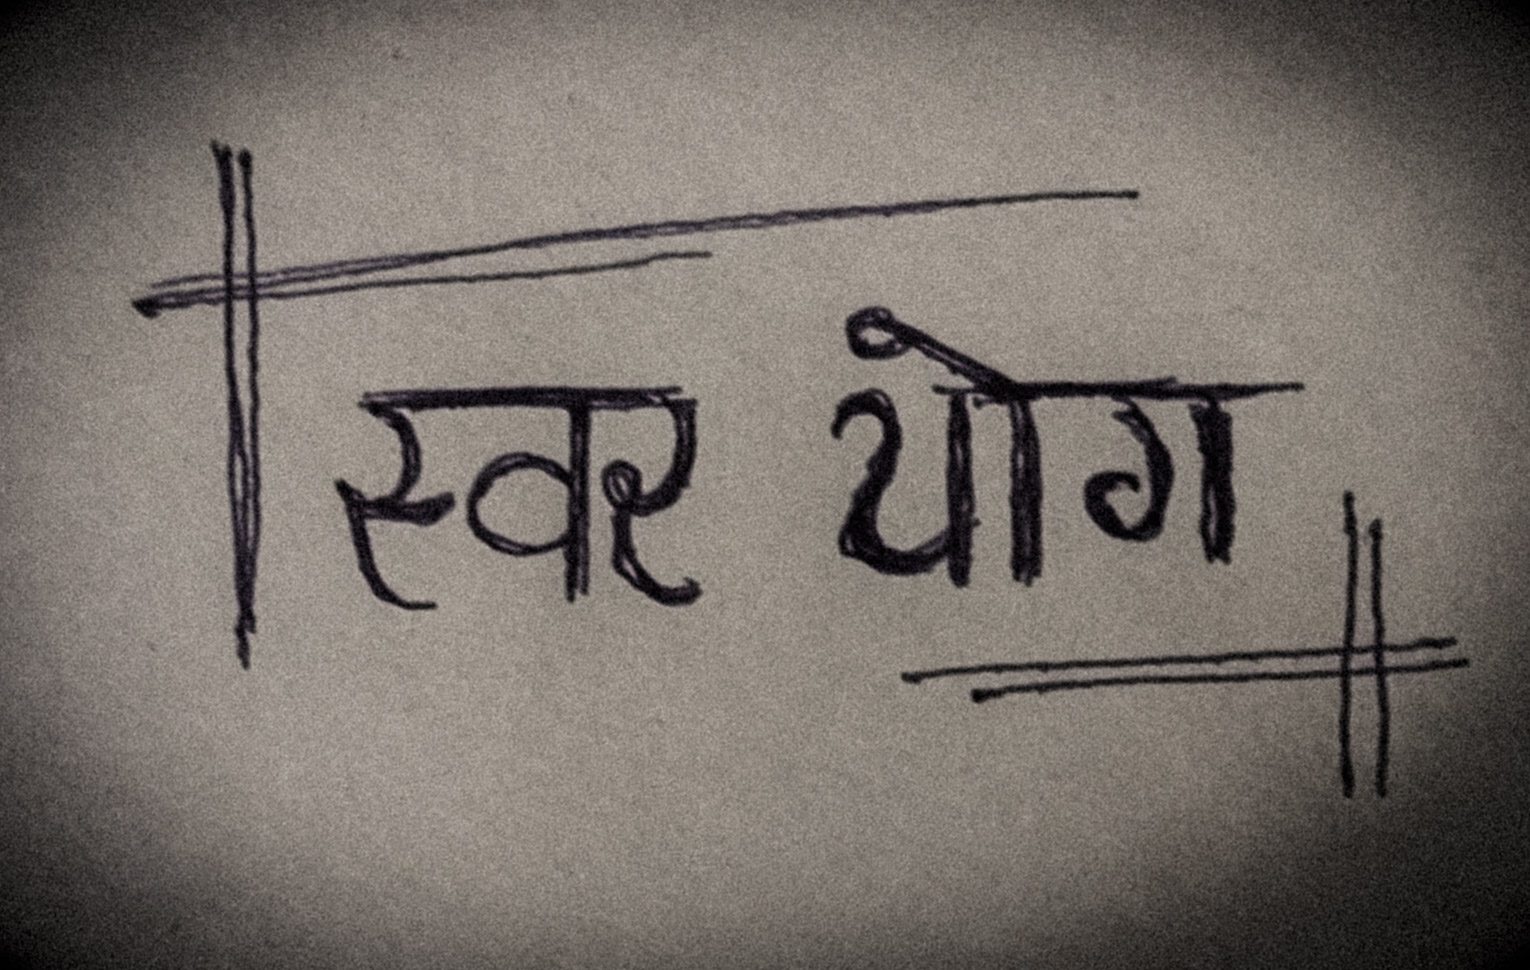 स्वर योग